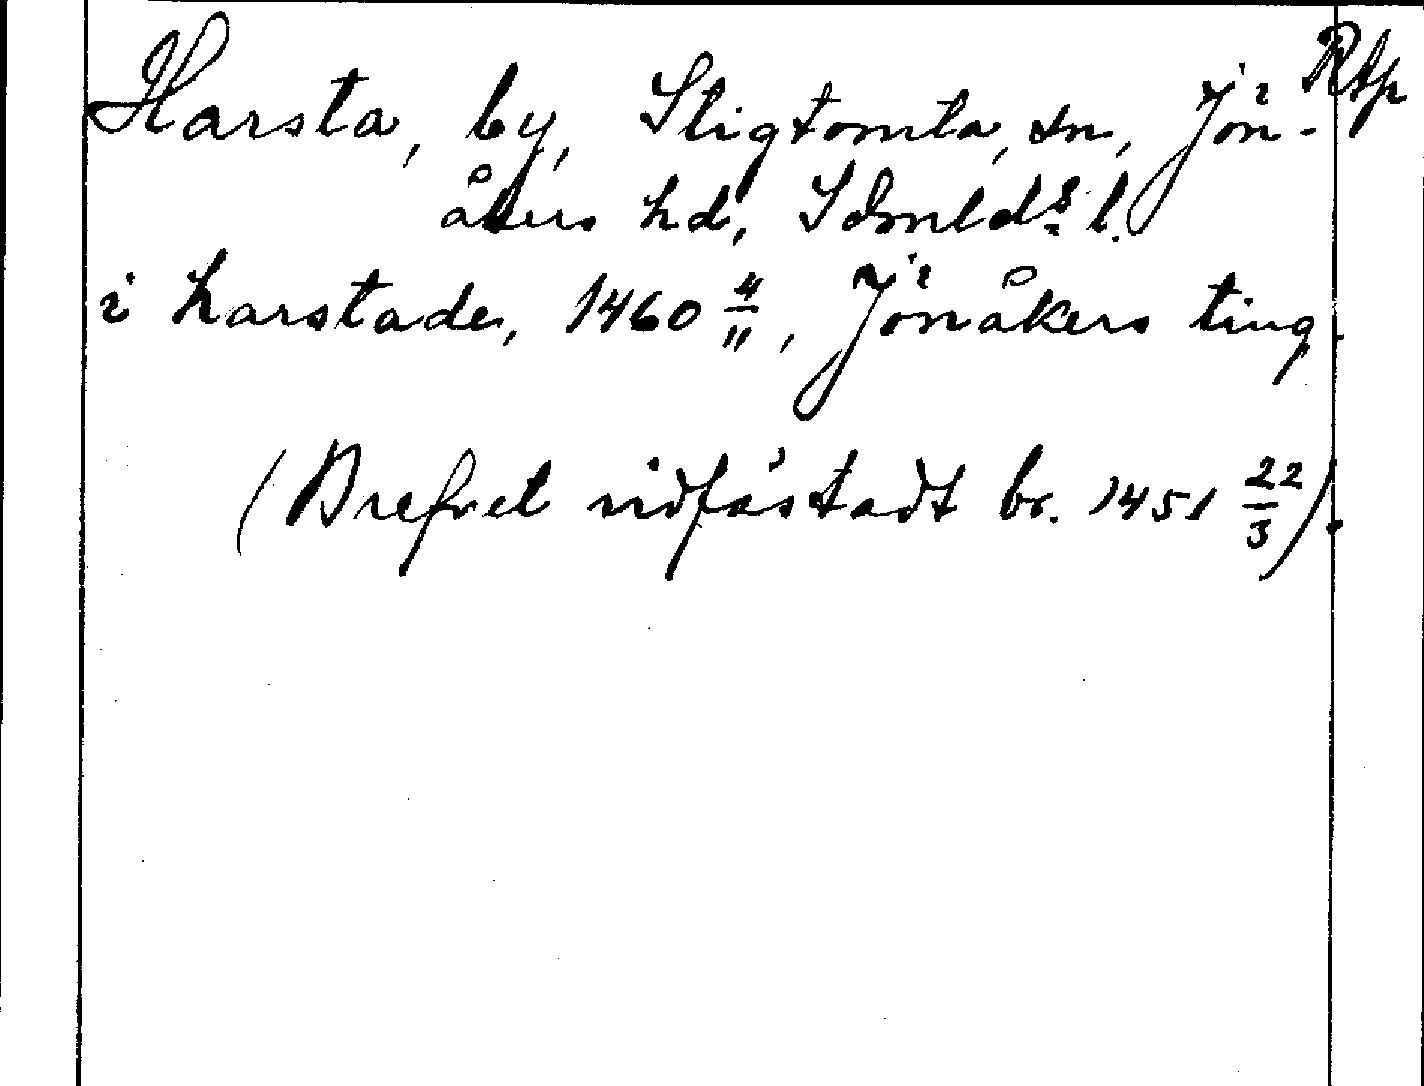 Harsta, by, Stigtomta, sn, Jön- Rtp
åkers hd, Södmlds l.
i harstade, 1460 4/11, Jönåkers ting.
(Brefvet vidfästadt br. 1451 22/3).